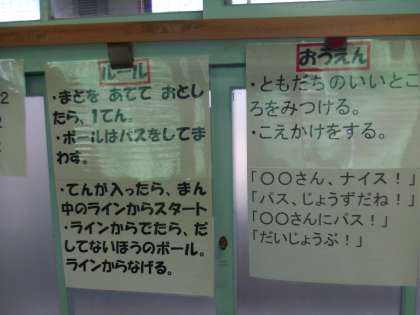 2
2
2
ルール
・まとを あてて おとし
たら、1てん。
・ボールはパスをしてま
わす。
・てんが入ったら、まん
中のラインからスタート
・ラインからでたら、だ
してないほうのボール。
ラインからなげる。
おうえん
・ともだちのいいとこ
ろをみつける。
・こえかけをする。
「〇〇さん、ナイス！」
「パス、じょうずだね！」
「〇〇さんにパス！」
「だいじょうぶ！」